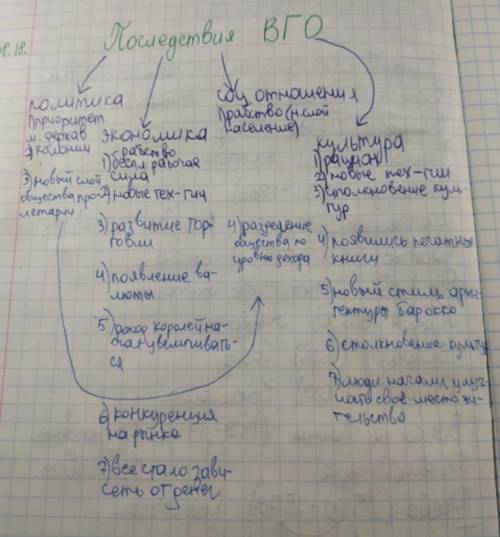 Последствия ВГО
политика
1) приоритет
м. держав
2) колонии
3) новый слой
общества про-
летарии
экономика
1) рабство
беспл. рабочая
сила
2) новые тех-гии
3) развитие тор-
говли
4) появление ва-
люты
5) доход королей на-
чал увеличивать-
ся
6) конкуренция
на рынке
7) все стало зави-
сеть от денег
соц отношения
1) рабство (н. слой
население)
4) разделение
общества по
уровню дохода
культура
1) рацион
2) новые тех-гии
3) столкновение куль-
тур
4) появились печатные
книги
5) новый стиль архи-
тектуры барокко
6) столкновение культур
7) люди начали улуч-
шать своё место жи-
тельство